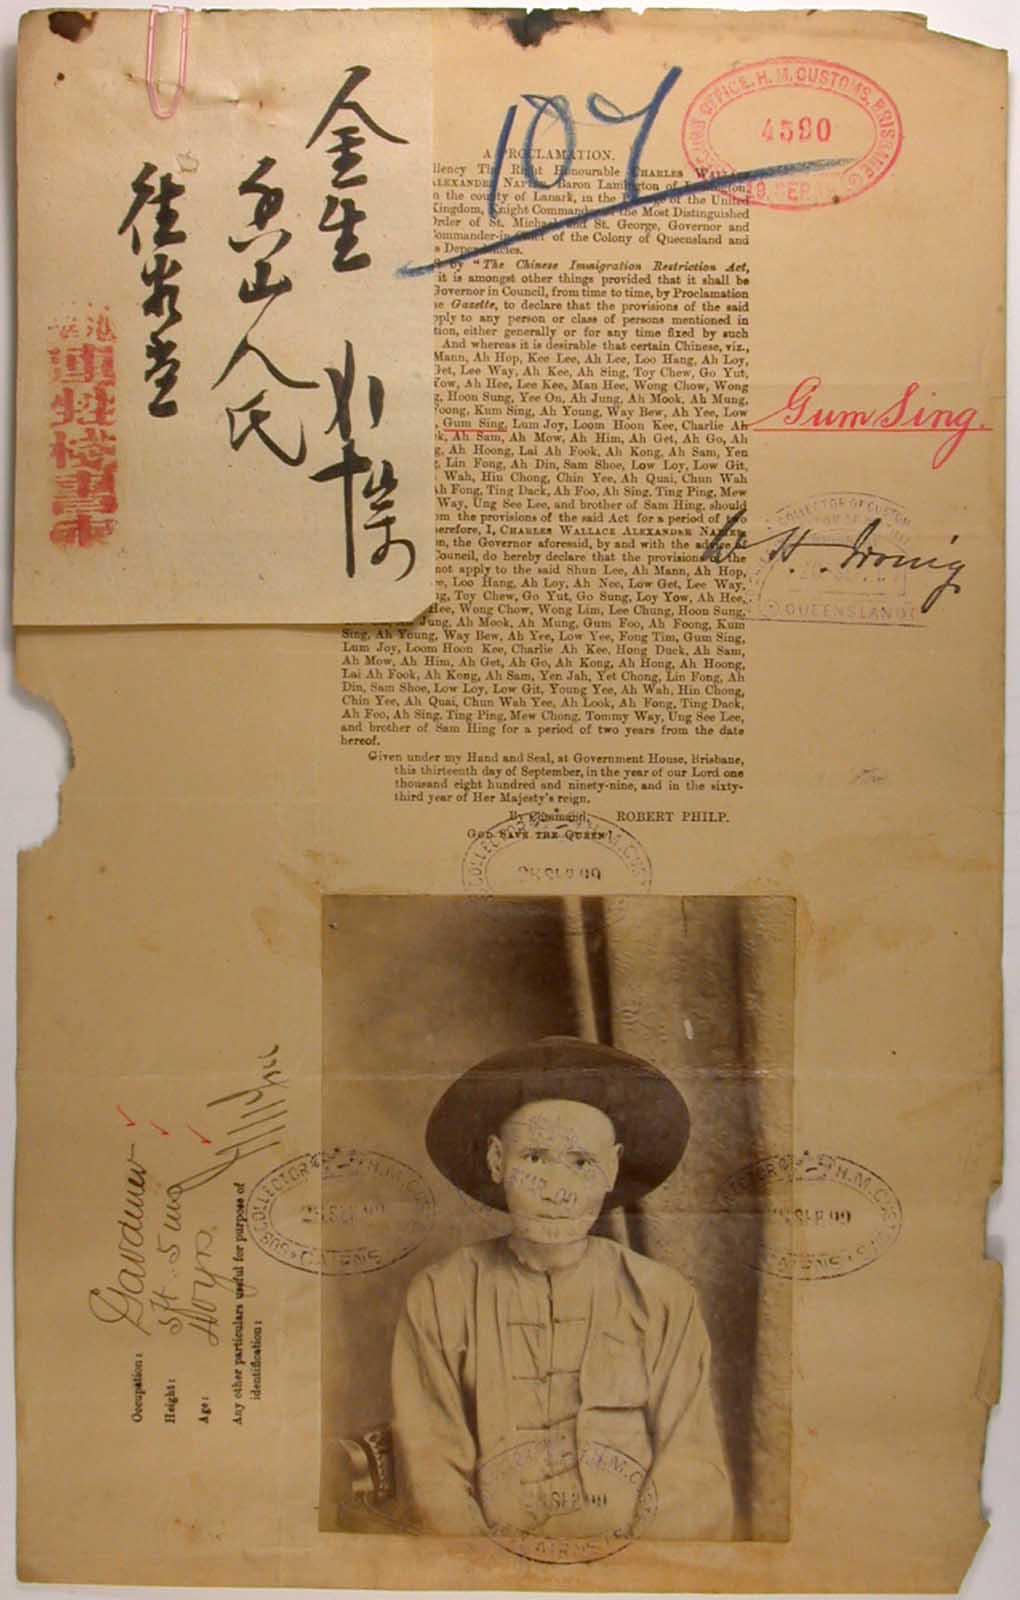 金生 
香山人氏
107
OFFICE, H. M. CUSTOMS, BRISBANE
4590
A PROCLAMATION.
llency The Right Honourable CHARLES WALLACE
ALEXANDER NAPIER, Baron Lamington of Lamington,
n the county of Lanark, in the of the United
Kingdom, Knight Commander of the Most Distinguished
Order of St. Michael and St. George, Governor and
Commander-in-Chief of the Colony of Queensland and
s Dependencies.
by "The Chinese Immigration Restriction Act,
it is amongst other things provided that it shall be
Governor in Council, from time to time, by Proclamation
e Gazette, to declare that the provisions of the said
pply to any person or class of persons mentioned in
tion, either generally or for any time fixed by such
And whereas it is desirable that certain Chinese, viz.,
Mann, Ah Hop, Kee Lee, Ah Lee, Loo Hang, Ah Loy,
Get, Lee Way, Ah Kee, Ah Sing, Toy Chew, Go Yut,
Yow, Ah Hee, Lee Kee, Man Hee, Wong Chow, Wong
g, Hoon Sung, Yee On, Ah Jung, Ah Mook, Ah Mung,
Foong, Kum Sing, Ah Young, Way Bew, Ah Yee, Low
, Gum Sing, Lum Joy, Loom Hoon Kee, Charlie Ah
k, Ah Sam, Ah Mow, Ah Him, Ah Get, Ah Go, Ah
g, Ah Hoong, Lai Ah Fook, Ah Kong, Ah Sam, Yen
g, Lin Fong, Ah Din, Sam Shoe, Low Loy, Low Git,
Wah, Hin Chong, Chin Yee, Ah Quai, Chun Wah
Ah Fong, Ting Dack, Ah Foo, Ah Sing, Ting Ping, Mew
Way, Ung See Lee, and brother of Sam Hing, should
om the provisions of the said Act for a period of two
herefore, I, CHARLES WALLACE ALEXANDER NAPIER,
on, the Governor aforesaid, by and with the advice of
Council, do hereby declare that the provisions of the
not apply to the said Shun Lee, Ah Mann, Ah Hop,
ee, Loo Hang, Ah Loy, Ah Nee, Low Get, Lee Way,
ng, Toy Chew, Go Yut, Go Sung, Loy Yow, Ah Hee,
Hee, Wong Chow, Wong Lim, Lee Chung, Hoon Sung,
Jung, Ah Mook, Ah Mung, Gum Foo, Ah Foong, Kum
Sing, Ah Young, Way Bew, Ah Yee, Low Yee, Fong Tim, Gum Sing,
Lum Joy, Loom Hoon Kee, Charlie Ah Kee, Hong Duck, Ah Sam,
Ah Mow, Ah Him, Ah Get, Ah Go, Ah Kong, Ah Hong, Ah Hoong,
Lai Ah Fook, Ah Kong, Ah Sam, Yen Jah, Yet Chong, Lin Fong, Ah
Din, Sam Shoe, Low Loy, Low Git, Young Yee, Ah Wah, Hin Chong,
Chin Yee, Ah Quai, Chun Wah Yee, Ah Look, Ah Fong, Ting Dack,
Ah Foo, Ah Sing, Ting Ping, Mew Chong, Tommy Way, Ung See Lee,
and brother of Sam Hing for a period of two years from the date
hereof.
Given under my Hand and Seal, at Government House, Brisbane,
this thirteenth day of September, in the year of our Lord one
thousand eight hundred and ninety-nine, and in the sixty-
third year of Her Majesty's reign.
By Command, ROBERT PHILP.
GOD SAVE THE QUEEN!
Gum Sing.
COLLECTOR OF CUSTOMS
QUEENSLAND
COLLECTOR H.M. CUS
Occupation: Gardener
Height: 5ft. 5ins
Age: 40 yrs.
Any other particulars useful for purpose of
identification:
COLLECTOR H.M. CUS
CAIRNS
H.M. CUS
CAIRNS
H.M. CUS
CAIRNS